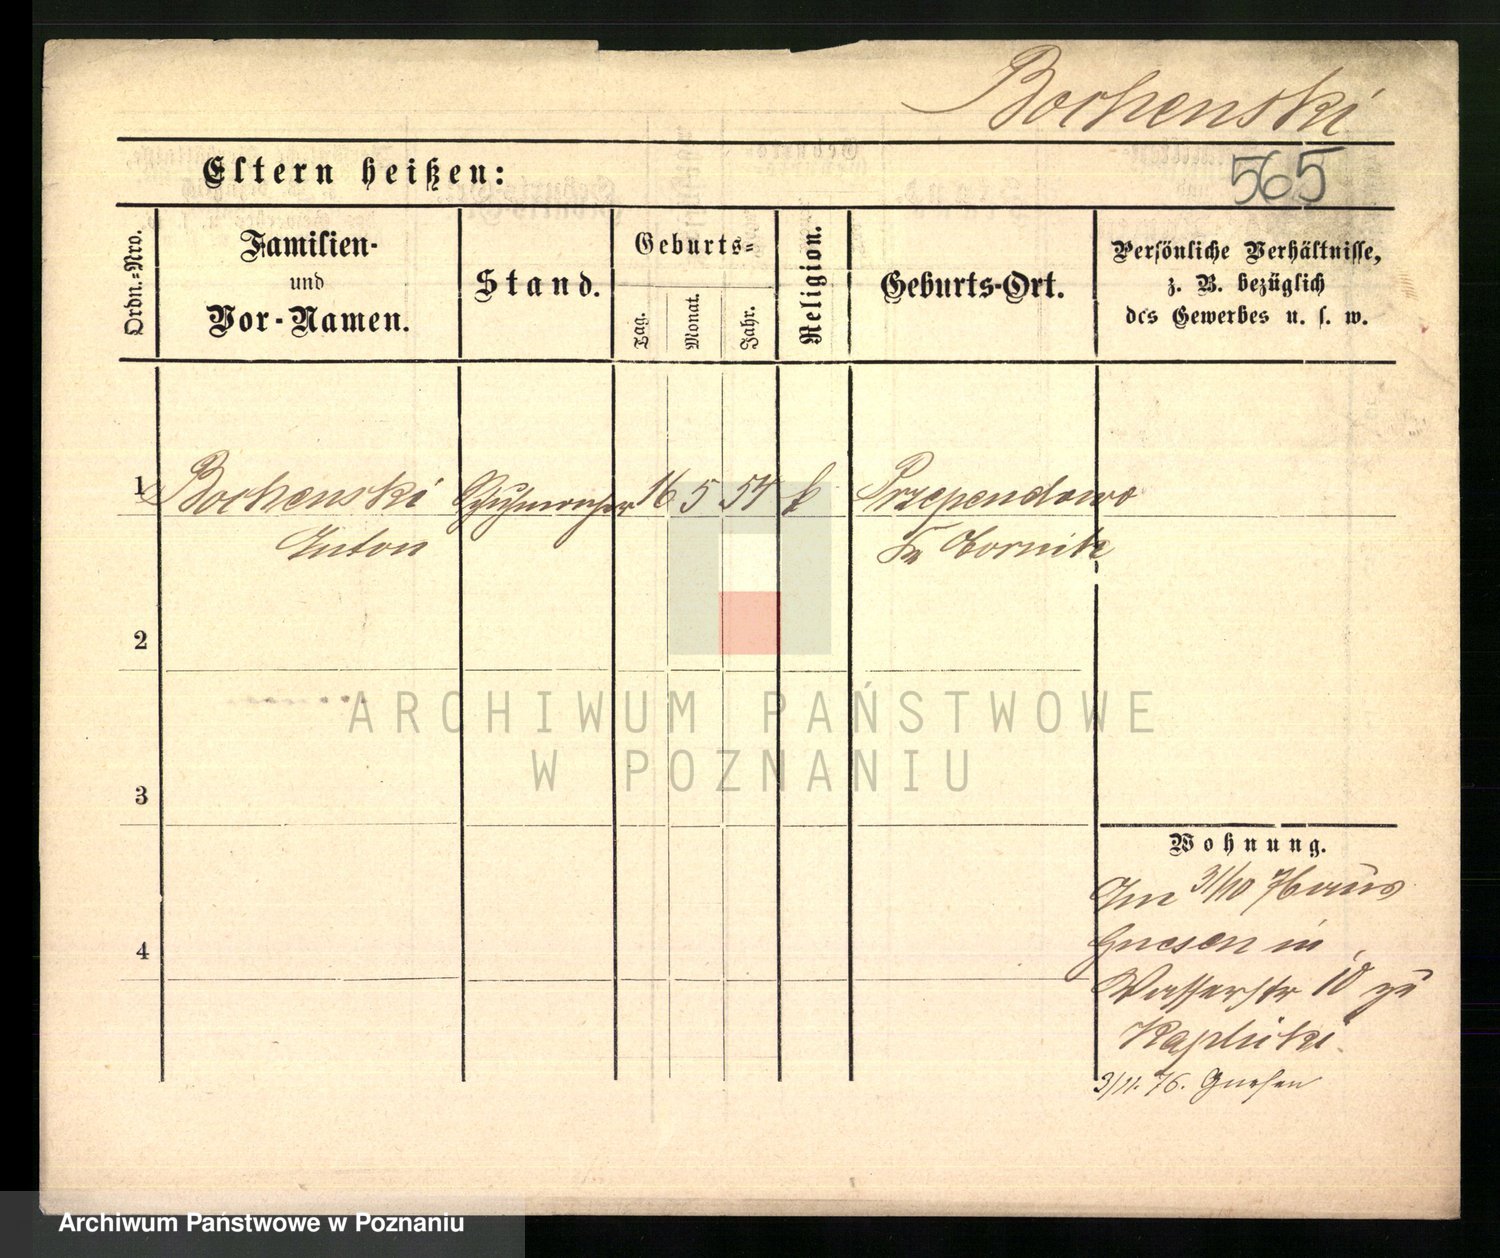 Bochenski
565
Eltern heißen:
Ordn.-Nro.
Familien-
und
Vor-Namen.
Stand.
Geburts-
Tag.
Monat.
Jahr.
Religion.
Geburts-Ort.
Persönliche Verhältnisse,
z. B. bezüglich
des Gewerbes u. s. w.
1 Bochenski Schuhmacher 16 5 54 k Przependowo
Anton
2
3
4
Wohnung.
31/10 76 aus
Gnesen in
Wasserstr 10 zu
Kaplicki
3/11. 76. Gnesen
ARCHIWUM PAŃSTWOWE
W POZNANIU
Archiwum Państwowe w Poznaniu